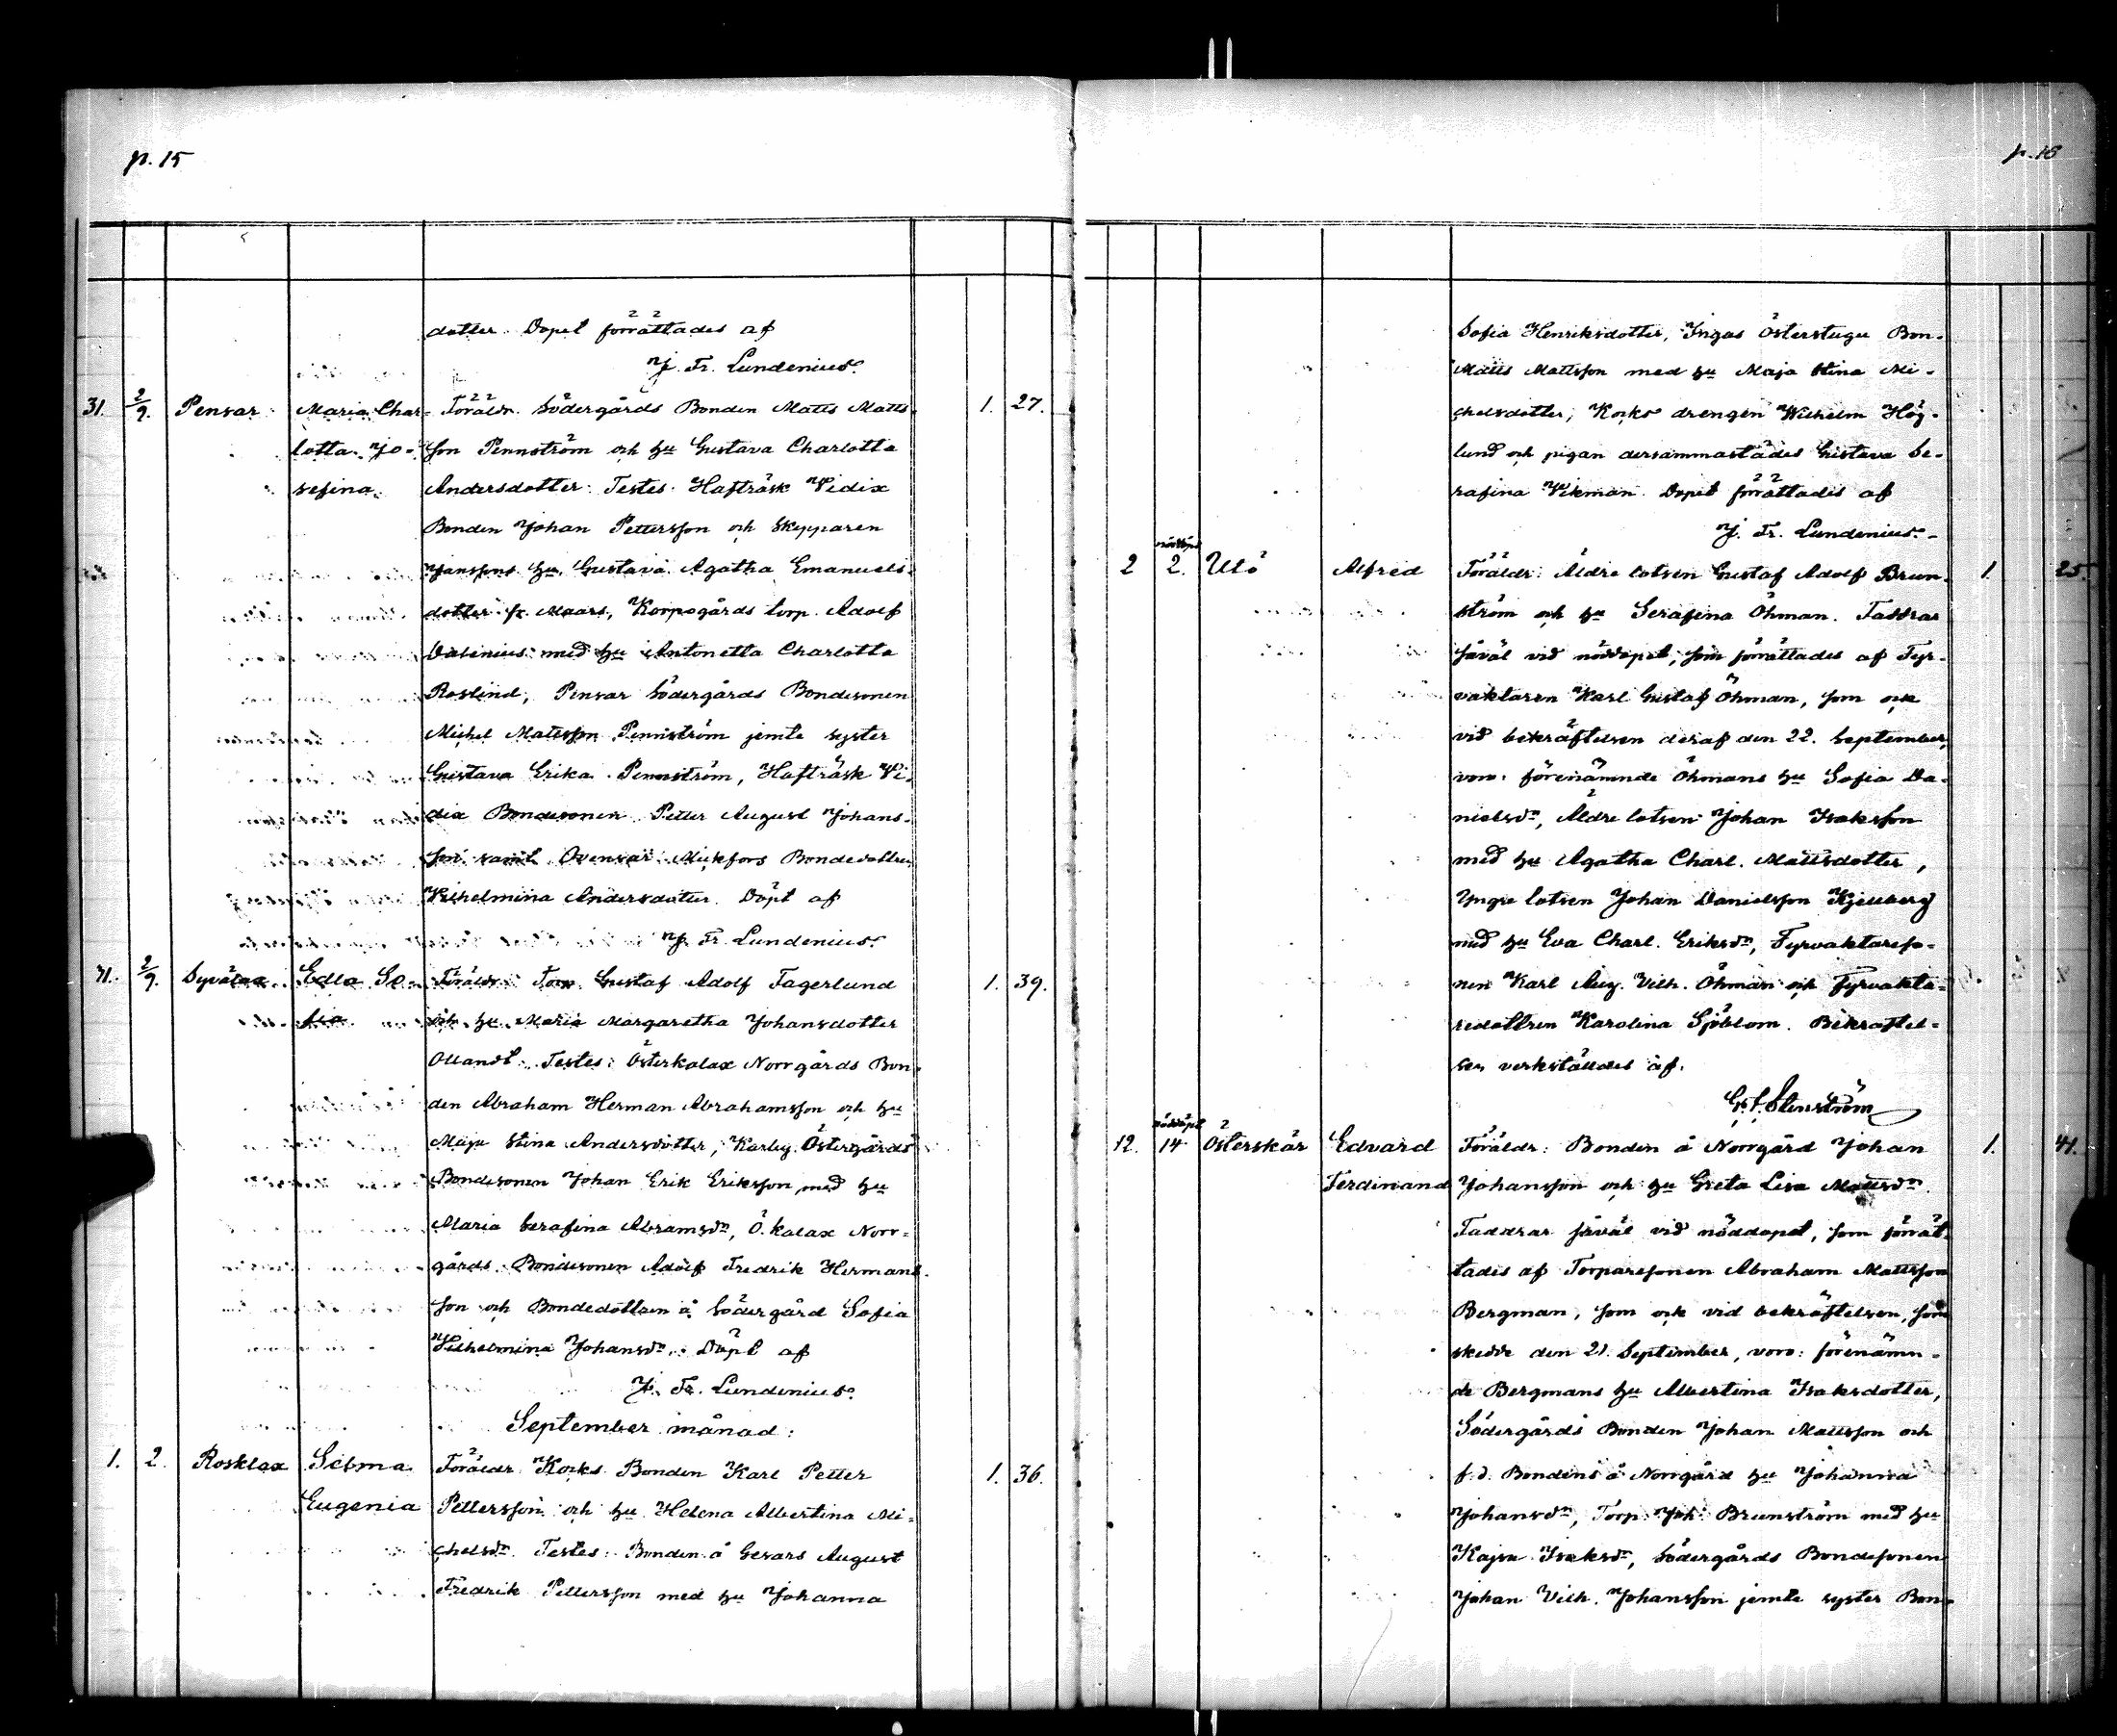 p. 15
dotter. Dopet förrättades af
J. Fr. Lundenius.
31. 2/9. Pensar Maria Char- Föräldr. Södergårds Bonden Matts Matts- 1. 27.
lotta Jo- son Pennström och hu Gustava Charlotta
sefina. Andersdotter. Testes. Hafträsk Vidix
Bonden Johan Pettersson och Skepparen
Janssons hu Gustava Agatha Emanuels-
dotter fr Maars, Korpogårds torp. Adolf
Valenius med hu Antonetta Charlotta
Roslind, Pensar Södergårds Bondesonen
Michel Mattsson Pennström jemte syster
Gustava Erika Pennström, Hafträsk Vi-
dix Bondesonen Petter August Johans-
son samt Ovensar Mickfors Bondedottren
Vilhelmina Andersdotter. Döpt af
J. Fr. Lundenius.
31. 2/9. Syvälax Edla So- Föräldr. Torp. Gustaf Adolf Fagerlund 1. 39.
fia och hu Maria Margaretha Johansdotter
Ollandt. Testes: Österkalax Norrgårds Bon-
den Abraham Herman Abrahamsson och hu
Maja Stina Andersdotter, Karby Östergårds
Bondesonen Johan Erik Eriksson med hu
Maria Serafina Abramsdr, Ö.kalax Norr-
gårds Bondesonen Adolf Fredrik Hermans-
son och Bondedottren å Södergård Sofia
Vilhelmina Johansdr. Döpt af
J. Fr. Lundenius.
September månad:
1. 2. Rosklax Selma Föräldr. Korks Bonden Karl Petter 1. 36.
Eugenia Pettersson och hu Helena Albertina Mi-
chelsdr. Testes: Bonden å Gesars August
Fredrik Pettersson med hu Johanna
p. 16
Sofia Henriksdotter, Ingas Österstugu Bon-
Matts Mattsson med hu Maja Stina Mi-
chelsdotter, Korks drengen Wilhelm Hög-
lund och pigan dersammastädes Gustava Se-
rafina Vikman. Dopet förrättades af
J. Fr. Lundenius.
nöddöpt
2 2. Utö Alfred Föräldr: Äldre lotsen Gustaf Adolf Brun- 1. 25.
ström och hu Serafina Öhman. Faddrar
såväl vid nöddopet, som förrättades af Fyr-
vaktaren Karl Gustaf Öhman, som ock
vid bekräftelsen deraf den 22. September,
voro: förenämnde Öhmans hu Sofia Da-
nielsdr, Äldre lotsen Johan Isaksson
med hu Agatha Charl. Mattsdotter,
Yngre lotsen Johan Danielsson Kjellberg
med hu Eva Charl. Eriksdr, Fyrvaktareso-
nen Karl Aug. Vilh. Öhman och Fyrvakta-
redottren Karolina Sjöblom. Bekräftel-
sen verkställdes af.
G. S. Stenström
nöddöpt
12. 14 Österskär Edvard Föräldr: Bonden å Norrgård Johan 1. 41.
Ferdinand Johansson och hu Greta Lisa Mattsdr.
Faddrar såväl vid nöddopet, som förrät-
tades af Torparesonen Abraham Mattsson
Bergman, som ock vid bekräftelsen, som
skedde den 21. September, voro: förenämn-
de Bergmans hu Albertina Isaksdotter,
Södergårds Bonden Johan Mattsson och
f.d. Bondens å Norrgård hu Johanna
Johansdr, Torp. Joh: Brunström med hu
Kajsa Isaksdr, Södergårds Bondesonen
Johan Vilh. Johansson jemte syster Bon-